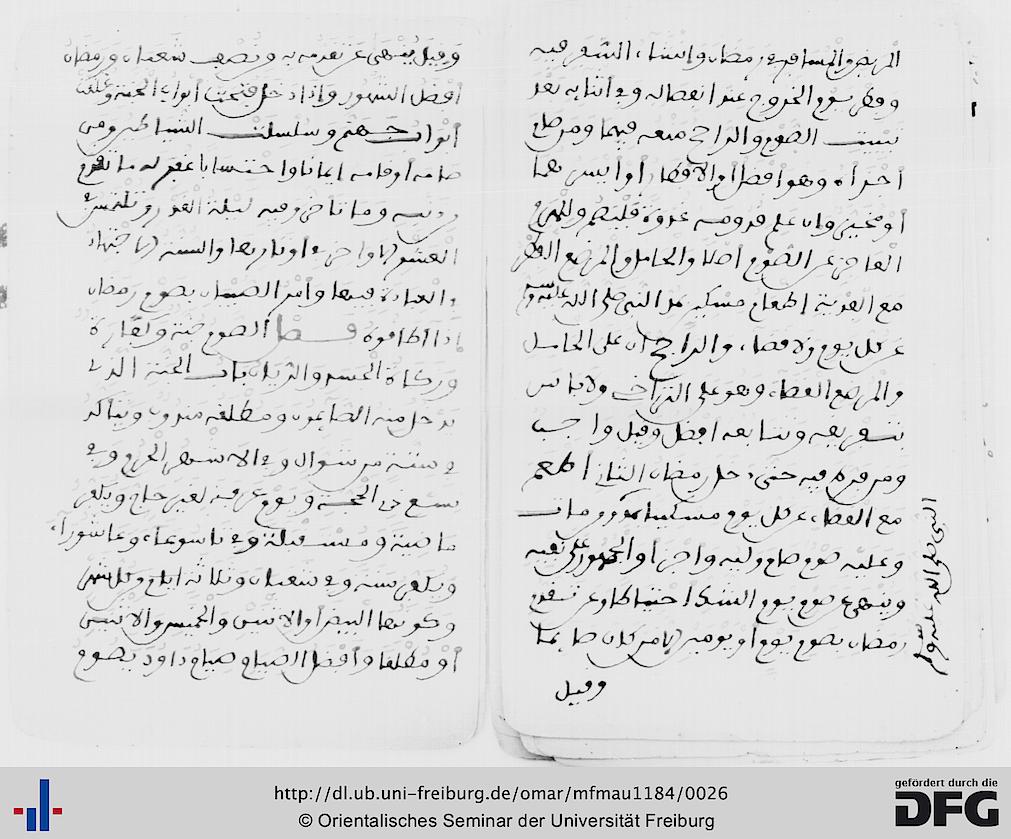 المريض والمسافر في رمضان وانشاء السفر فيه
وفطر يوم الخروج عند انفصاله وفي أثنائه بعد
تبييت الصوم والراجح منعه فيهما ومن صام
أجزأه وهو أفضل أو الافطار أو أيسرهما
أو مخير وان علم قدومه غدوة والهرم
العاجز عن الصوم أصلا والحامل والمرضع الفطر
مع الفدية اطعام مسكين مد النبي صلى الله عليه وسلم
عن كل يوم ولا قضاء والراجح ان على الحامل
والمرضع القضاء وهو على التراخي ولا باس
بتفريقه وتتابعه افضل وقيل واجب
ومن فرط فيه حتى دخل رمضان الثاني أطعم
مع القضاء عن كل يوم مسكينا ومن مات
وعليه صوم صام وليه وأجزأ والجمهور على نفيه
وينهى عن صوم يوم الشك احتياطا وعن تقدم
رمضان بصوم يوم أو يومين إلا من كان صائما
وقيل
النبي صلى الله عليه وسلم
وقيل ينهى عن تقدمه به ونصف شعبان ورمضان
أفضل الشهور وإذا دخل فتحت أبواب الجنة وغلقت
أبواب جهنم وسلسلت الشياطين ومن
صامه أو قامه إيمانا واحتسابا غفر له ما تقدم
من ذنبه وما تأخر وفيه ليلة القدر وتلتمس في
العشر الأواخر في أوتارها والسنة الاجتهاد
والعبادة فيها وأمر الصبيان بصوم رمضان
إذا أطاقوه فصل الصوم جنة وكفارة
وزكاة الجسد والريان باب الجنة الذي
يدخل منه الصائمون ومطلقه مندوب ويتأكد
في ستة من شوال وفي الاشهر الحرم وفي
تسع ذي الحجة ويوم عرفة لغير حاج ويكفر
ماضية ومستقبلة وفي تاسوعاء وعاشوراء
ويكفر سنة وفي شعبان وثلاثة أيام من كل شهر
وكونها البيض أو الاثنين والخميس والاثنين
أو مطلقا وأفضل الصيام صيام داود يصوم
http://dl.ub.uni-freiburg.de/omar/mfmau1184/0026
© Orientalisches Seminar der Universität Freiburg
gefördert durch die
DFG